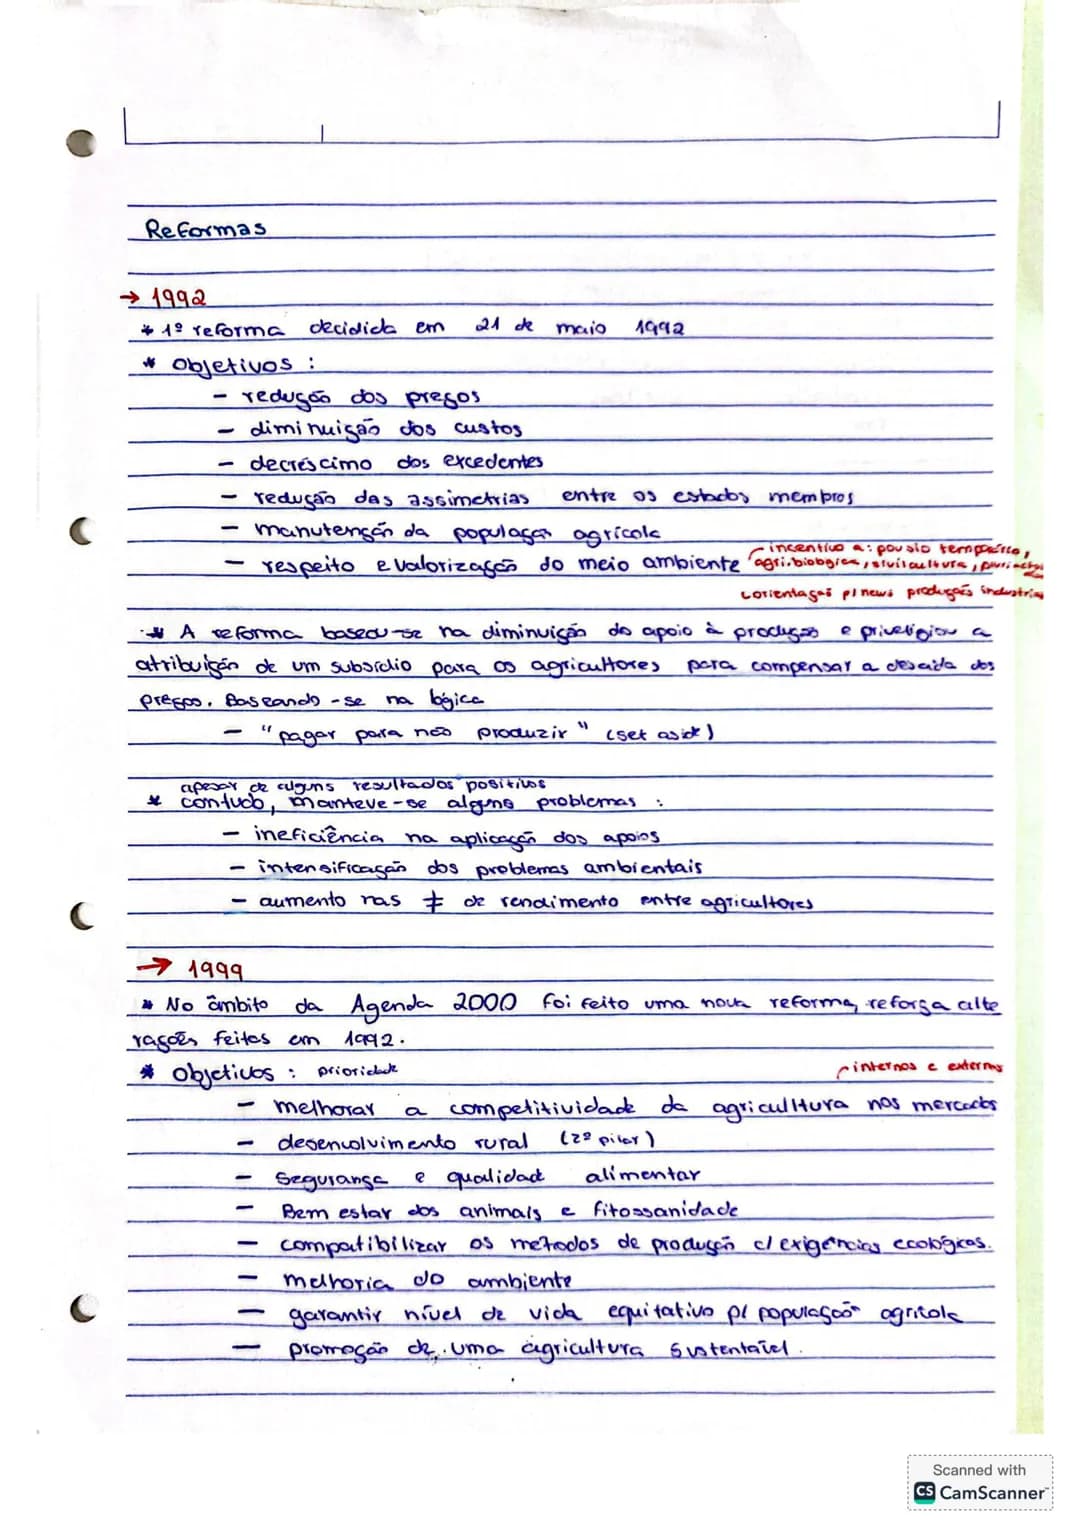 Reformas
→ 1992
* 1º reforma decidida em 21 de maio 1992
* Objetivos :
- redução dos preços
- diminuição dos custos
- decréscimo dos excedentes
- redução das assimetrias entre os estados membros
- manutenção da população agrícola
incentivo a: pousio temporário,
- respeito e valorização do meio ambiente agri. biológica, silvicultura,
orientação p/ novas produções industriais
* A reforma baseou-se na diminuição do apoio à produção e priveligiou a
atribuição de um subsídio para os agricultores para compensar a descida dos
preços. Baseando-se na lógica
- "pagar para não produzir" (set aside)
apesar de alguns resultados positivos
* contudo, manteve-se alguns problemas :
- ineficiência na aplicação dos apoios
- intensificação dos problemas ambientais
- aumento nas ≠ de rendimento entre agricultores
→ 1999
* No âmbito da Agenda 2000 foi feito uma nova reforma, reforça alte
rações feitas em 1992.
* Objetivos : prioridade
internos e externos
- melhorar a competitividade da agricultura nos mercados
- desenvolvimento rural (2º pilar)
- Segurança e qualidade alimentar
- Bem estar dos animais e fitossanidade
- compatibilizar os métodos de produção c/ exigências ecológicas.
- melhoria do ambiente
- garantir nível de vida equitativo p/ população agrícola
- promoção de uma agricultura sustentável.
Scanned with
CS CamScanner